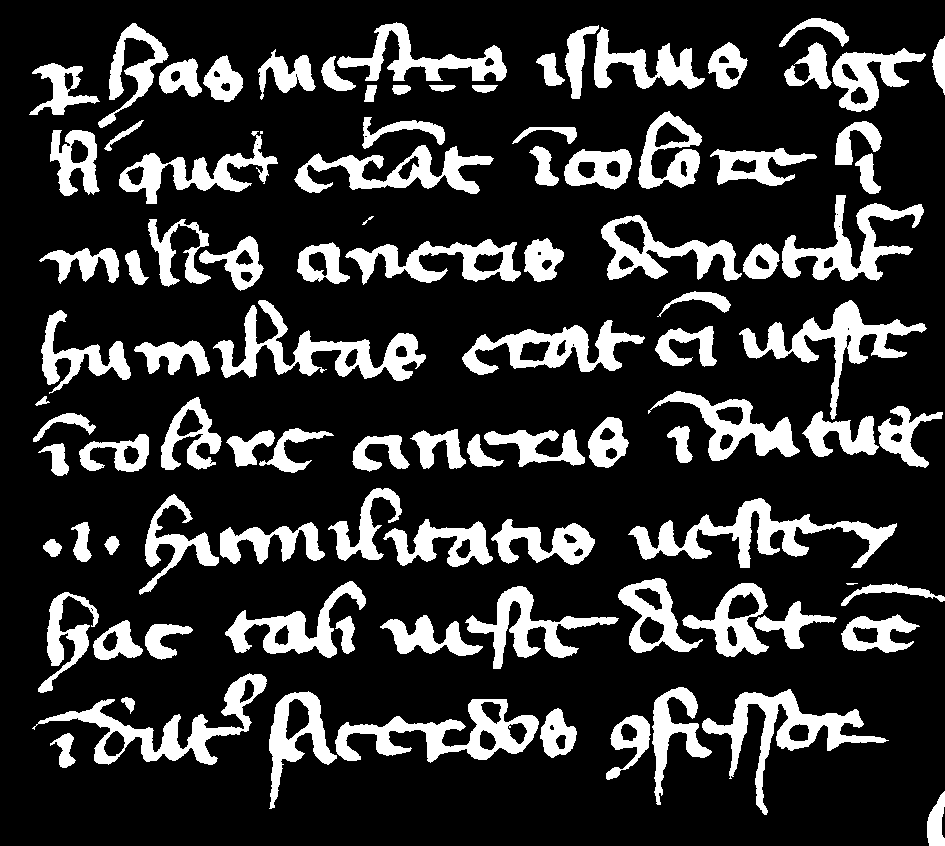 ꝑ has uestes istius āge
li que erāt īcolore si
miles cineris denotat᷑
humilitas erat eī ueste
īcolore cineris īdutus
.i. humilitatis ueste ⁊
hac tali ueste debet eē
īdut᷒ sacerdos ꝯfessor